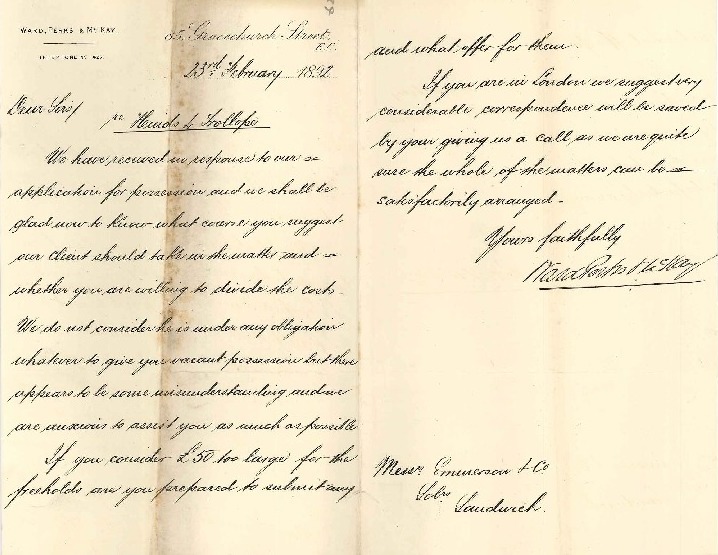 WARD, PERKS & Mc KAY
85, Gracechurch Street,
E.C.
23rd February 1892
Dear Sirs/
re Hinds & Trollope
We have received in response to our
application for possession and we shall be
glad now to know what course you suggest
our client should take in the matter and
whether you are willing to divide the costs.
We do not consider he is under any obligation
whatever to give you vacant possession but there
appears to be some misunderstanding and we
are anxious to assist you as much as possible
If you consider £50 too large for the
freeholds are you prepared to submit any
and what offer for them.
If you are in London we suggest very
considerable correspondence will be saved
by your giving us a call, as we are quite
sure the whole of the matters can be
satisfactorily arranged.
Yours faithfully
Ward Perks & McKay
Messrs Emmerson & Co
Solrs
Sandwich.